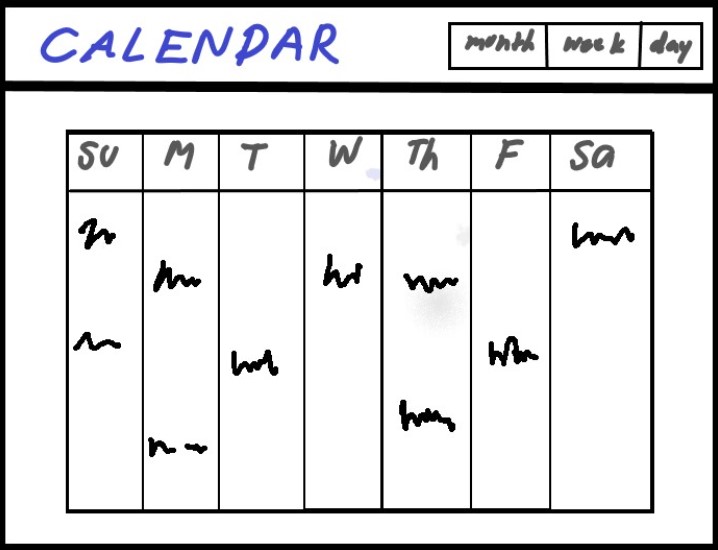 CALENDAR
month week day
Su M T W Th F Sa